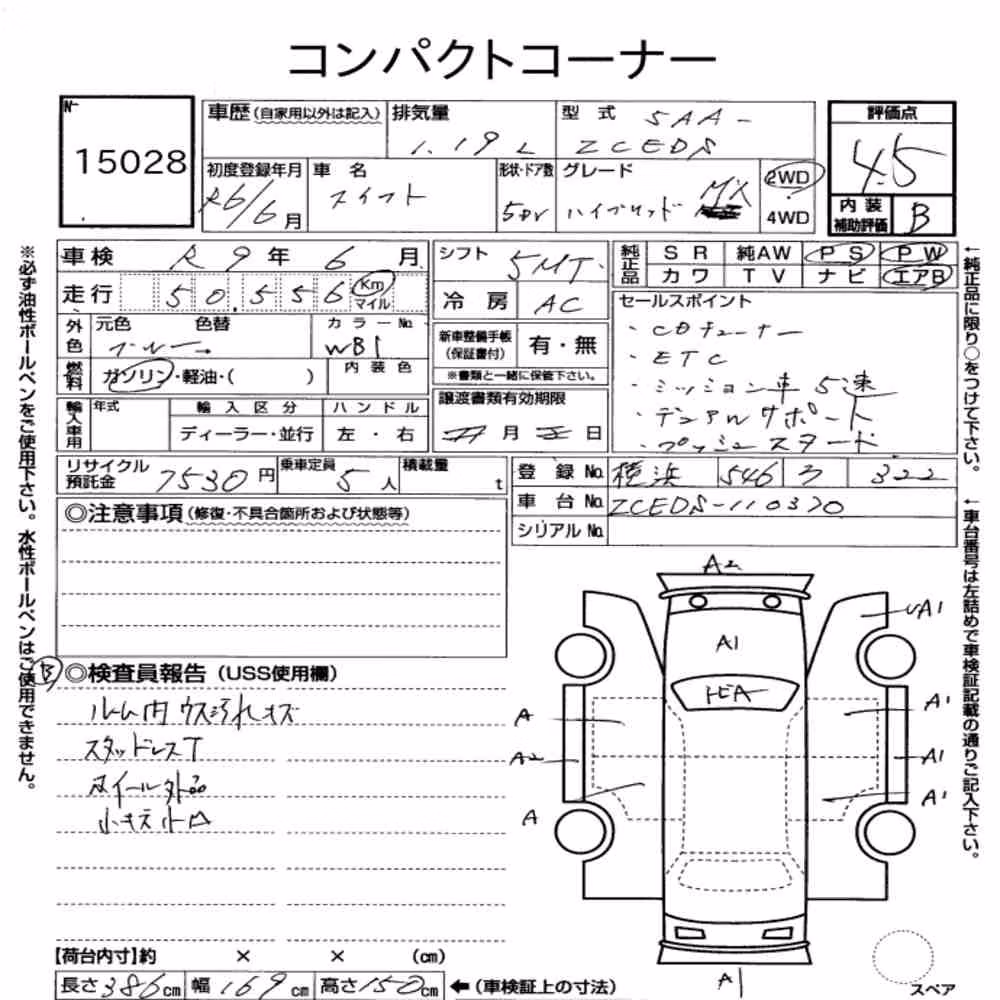 コンパクトコーナー
№
15028
車歴(自家用以外は記入) 排気量 1.19 L 型式 5AA-
ZCEDS
評価点
4.5
初度登録年月 R6/6月 車名 スイフト 形状・ドア数 5DV グレード ハイブリッド MX 2WD
4WD
内装
補助評価 B
車検 R9年 6月
走行 50,556 Km
マイル
外色 元色 色替 カラーNo.
ブルー WB1
燃料 ガソリン・軽油・( ) 内装色
輸入車用 年式 輸入区分 ハンドル
ディーラー・並行 左・右
シフト 5MT
冷房 AC
新車整備手帳
(保証書付) 有・無
※書類と一緒に保管下さい。
譲渡書類有効期限
月 日
純正品 SR 純AW PS PW
カワ TV ナビ エアB
セールスポイント
・CDチューナー
・ETC
・ミッション車 5速
・デュアルサポート
・プッシュスタート
リサイクル
預託金 7530円 乗車定員 5人 積載量 t
登録No. 横浜 546 ヌ 322
車台No. ZCEDS-110370
シリアルNo.
◎注意事項(修復・不具合箇所および状態等)
B ◎検査員報告(USS使用欄)
ルーム内 ウス汚れキズ
スタッドレスT
ホイール外品
小キズ小凹
A2
A1
トビA
A
A2
A
A1
A1
A1
A1
A1
スペア
【荷台内寸】約 × × (cm)
長さ386cm 幅169cm 高さ150cm ←(車検証上の寸法)
※必ず油性ボールペンをご使用下さい。水性ボールペンはご使用できません。
←純正品に限り○をつけて下さい。
←車台番号は左詰めで車検証記載の通りご記入下さい。